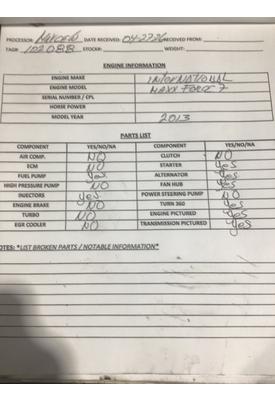 PROCESSOR: MARCOS DATE RECEIVED: 04-27-26 RECEIVED FROM:
TAG#: 102088 STOCK#: WEIGHT:
ENGINE INFORMATION
ENGINE MAKE INTERNATIONAL
ENGINE MODEL MAXX FORCE 7
SERIAL NUMBER / CPL
HORSE POWER
MODEL YEAR 2013
PARTS LIST
COMPONENT YES/NO/NA COMPONENT YES/NO/NA
AIR COMP. NO CLUTCH NO
ECM NO STARTER Yes
FUEL PUMP Yes ALTERNATOR Yes
HIGH PRESSURE PUMP NO FAN HUB Yes
INJECTORS Yes POWER STEERING PUMP NO
ENGINE BRAKE NO TURN 360 Yes
TURBO NO ENGINE PICTURED Yes
EGR COOLER NO TRANSMISSION PICTURED Yes
OTES: *LIST BROKEN PARTS / NOTABLE INFORMATION*